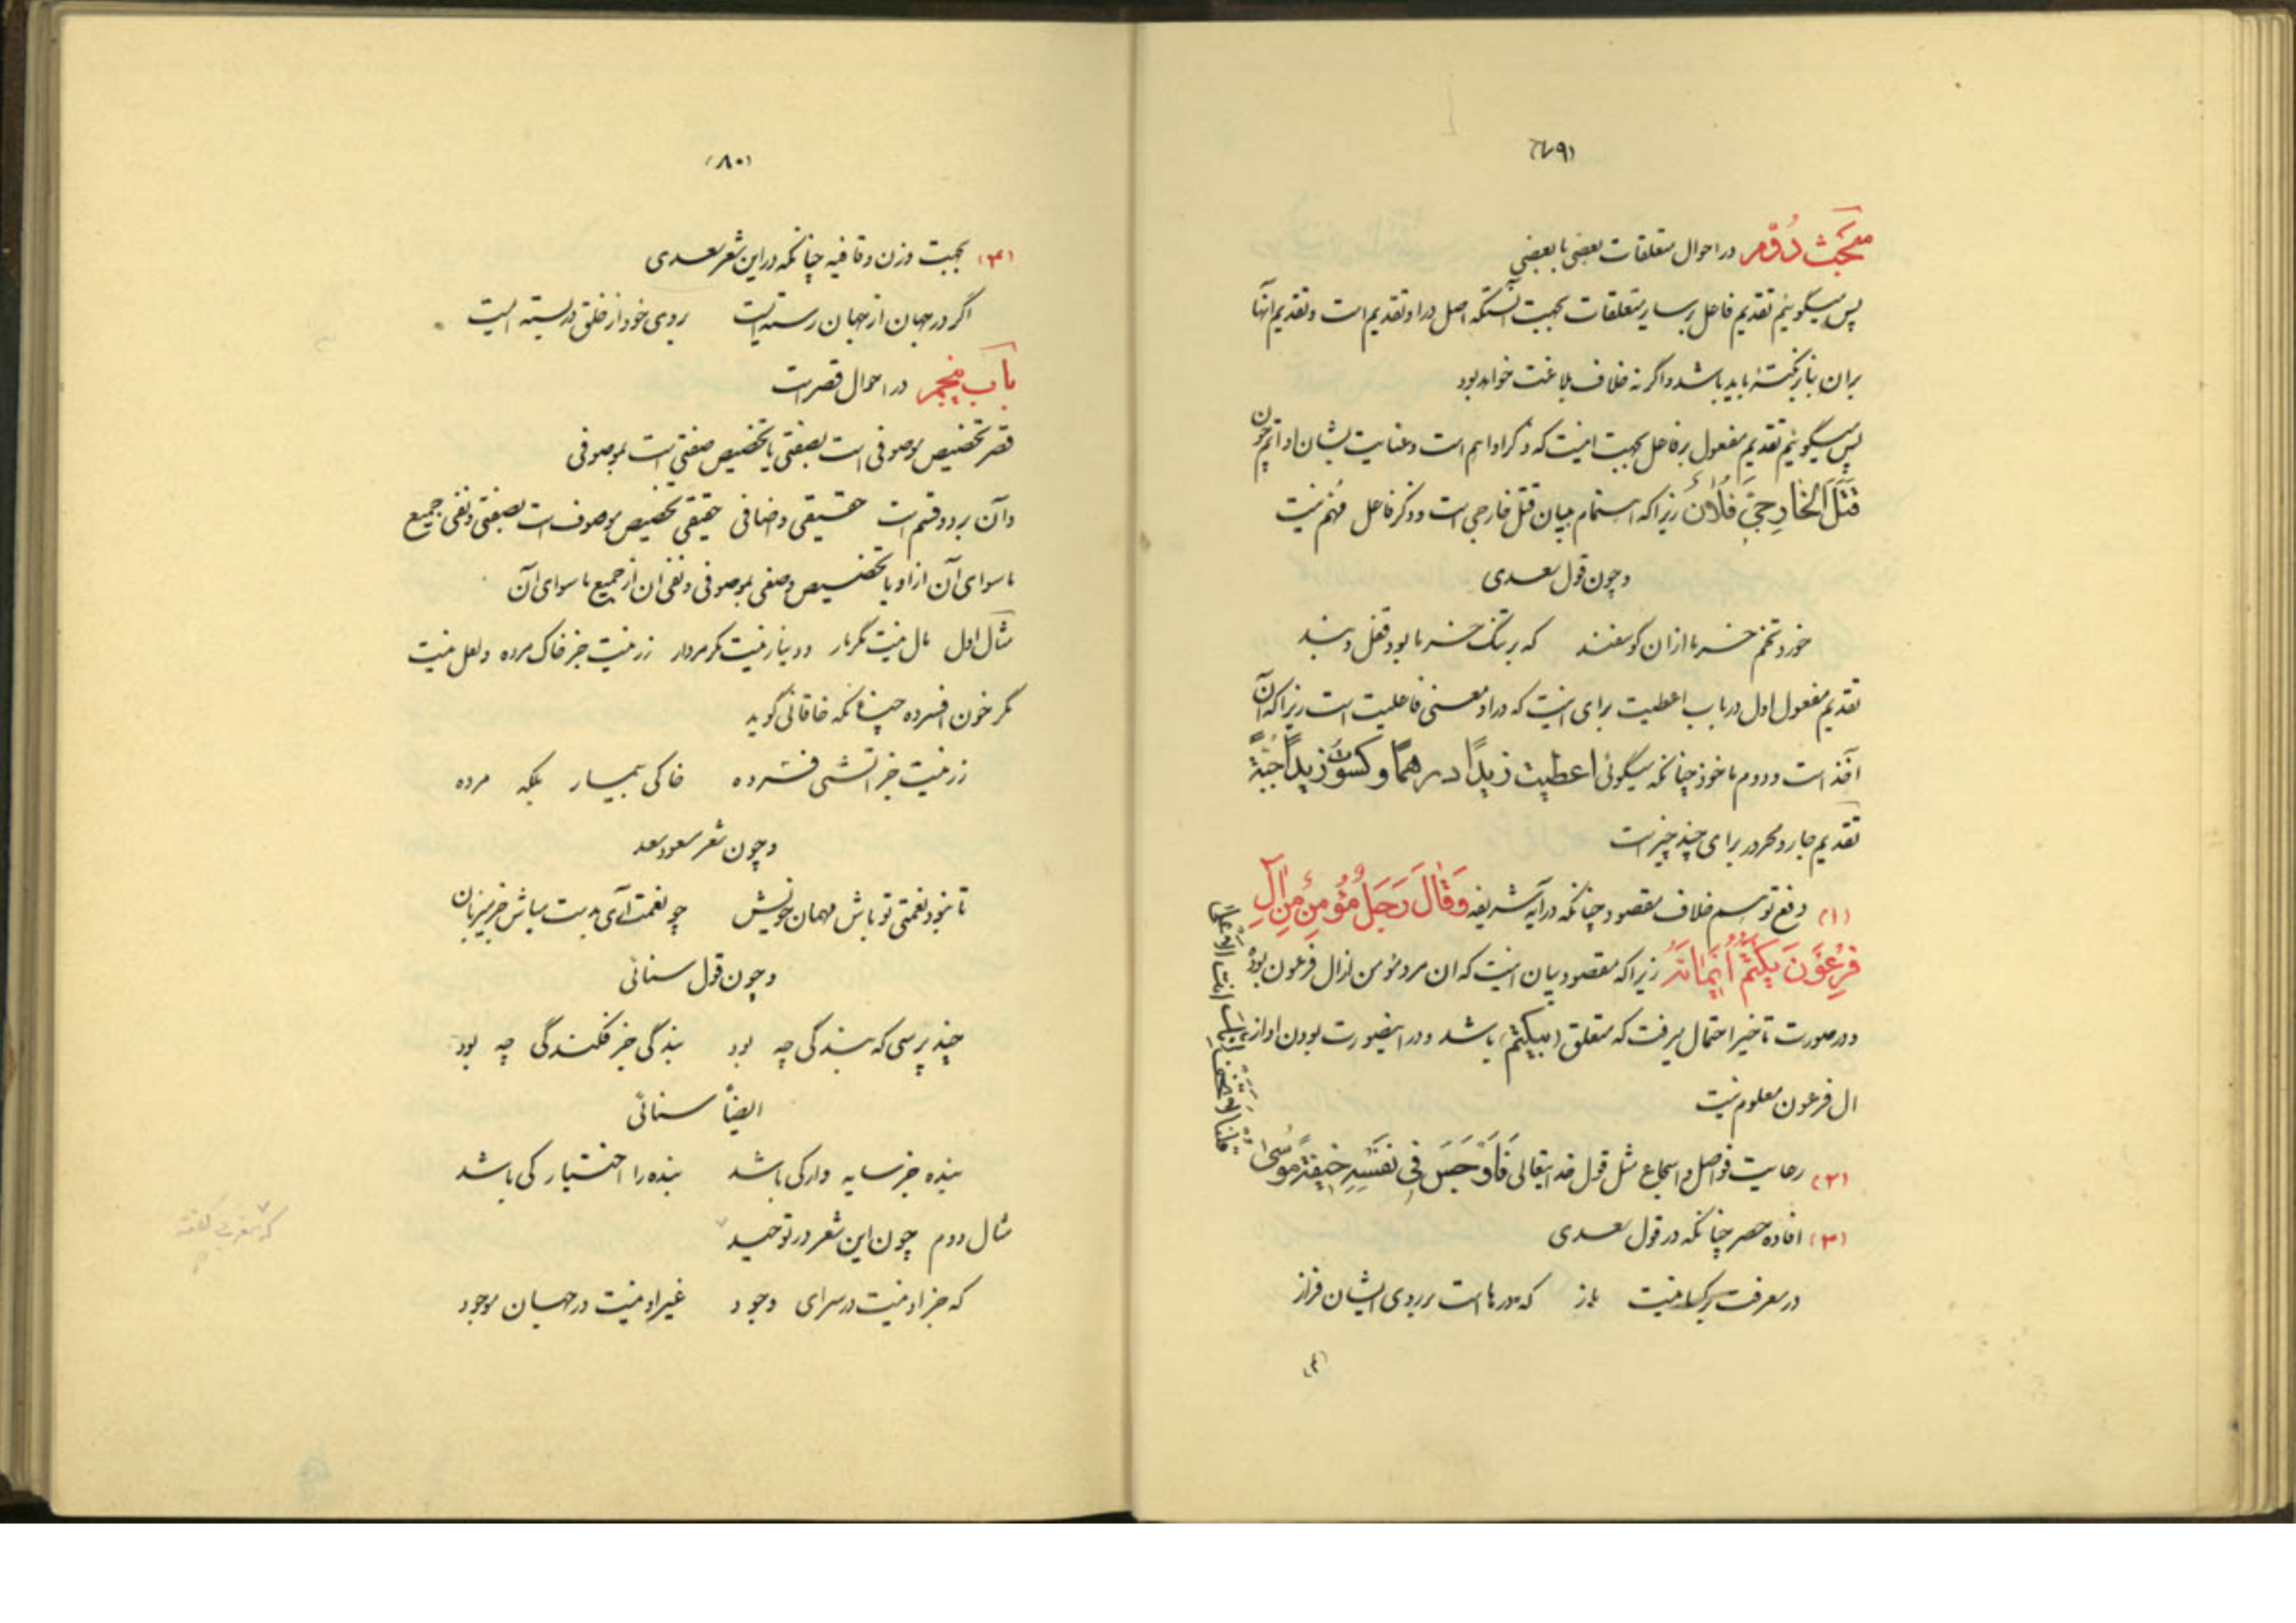 (۷۹)
مبحث دوّم در احوال متعلقات بعضی با بعضی
پس میگوئیم تقدیم فاعل بر سایر متعلقات بجهت آنستکه اصل در او تقدیم است و تقدیم آنها
بران بنابر نکتهٔ باید باشد و اگر نه خلاف بلاغت خواهد بود
پس میگوئیم تقدیم مفعول بر فاعل بجهت اینست که ذکر او اهم است و عنایت بشان او اتم چون
قَتَلَ الخارِجِیَّ فُلانٌ زیرا که اهتمام ببیان قتل خارجی است و ذکر فاعل مهم نیست
و چون قول سعدی
خورد تخم خرما ازان گوسفند که بر تنگ خرما بود قفل و بند
تقدیم مفعول اول در باب اعطیت برای اینست که در او معنی فاعلیت است زیرا که آن
آخذ است و دوم ماخوذ چنانکه میگوئی اعطیت زیدًا درهمًا و کسوتُ زیدًا جبّةً
تقدیم جار و مجرور برای چند چیز است
(۱) دفع توهم خلاف مقصود چنانکه در آیه شریفه وَقالَ رَجُلٌ مُؤمِنٌ مِن آلِ
فِرعَونَ یَکتُمُ اِیمانَهُ زیرا که مقصود بیان اینست که ان مرد مؤمن از ال فرعون بوده
و در صورت تاخیر احتمال میرفت که متعلق (بیکتم) باشد و در اینصورت بودن او از
ال فرعون معلوم نیست
(۲) رعایت فواصل و اسجاع مثل قول خدایتعالی فَاَوْجَسَ فی نَفْسِهِ خیفَةً مُوسی
قلنا لا تخف انک انت الاعلی
(۳) افاده حصر چنانکه در قول سعدی
در معرفت بر کسانیست باز که درهاست بر روی ایشان فراز
(۴)
(۸۰)
(۴) بجهت وزن و قافیه چنانکه در این شعر سعدی
اگر در جهان از جهان رسته ایست روی خود از خلق در بسته ایست
باب پنجم در احوال قصر است
قصر تخصیص موصوفی است بصفتی یا تخصیص صفتی است بموصوفی
و آن بر دو قسم است حقیقی و اضافی حقیقی تخصیص موصوف است بصفتی و نفی جمیع
ماسوای آن از او یا تخصیص وصفی بموصوفی و نفی ان از جمیع ماسوای آن
مثال اول مال نیست مگر مار و دینار نیست مگر مردار زر نیست جز خاک مرده و لعل نیست
مگر خون افسرده چنانکه خاقانی گوید
زر نیست جز آتشی فسرده خاکی بیمار بلکه مرده
و چون شعر مسعود سعد
تا نبود نعمتی تو باش مهمان خویش چو نعمت آری بدست مباش جز میزبان
و چون قول سنائی
چند پرسی که بندگی چه بود بندگی جز فکندگی چه بود
ایضاً سنائی
بنده جز سایه وار کی باشد بنده را اختیار کی باشد
مثال دوم چون این شعر در توحید
که جز او نیست در سرای وجود غیر او نیست در جهان موجود